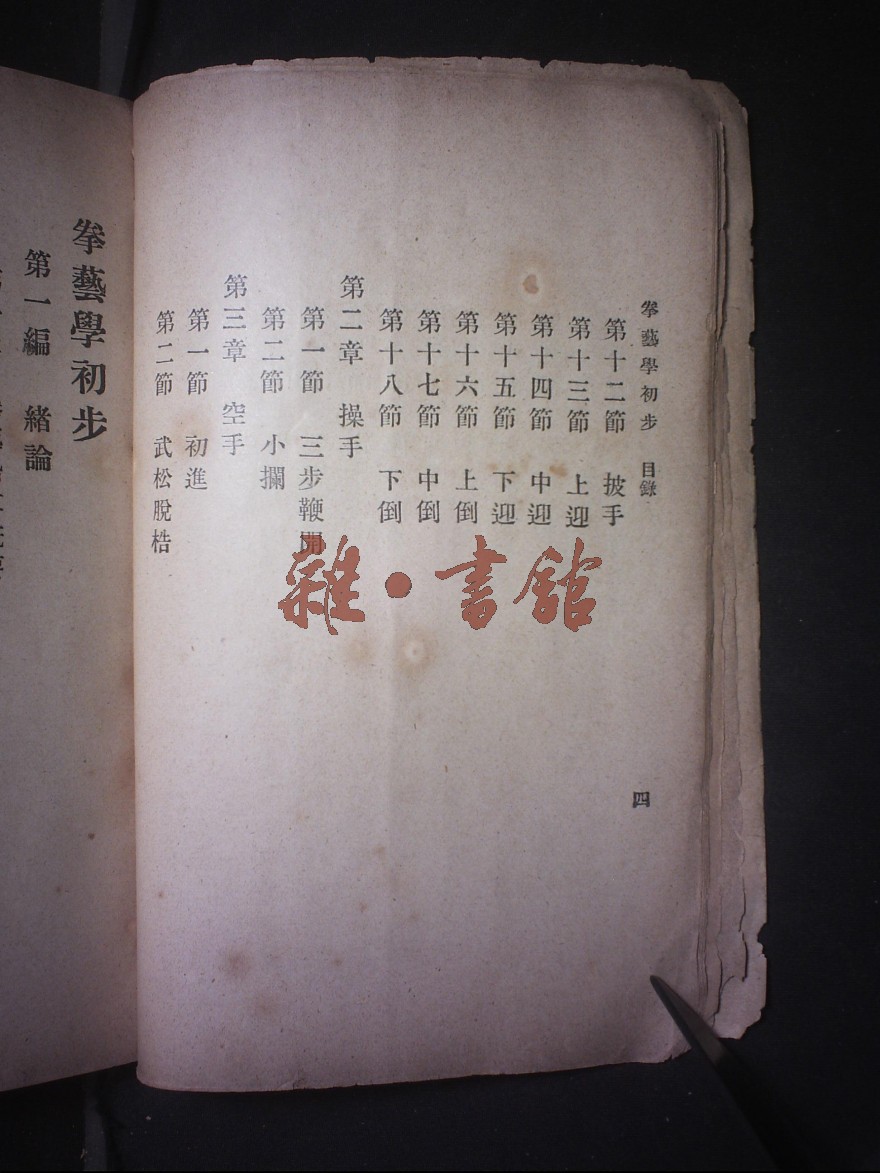 拳藝學初步　目錄
第十二節　披手
第十三節　上迎
第十四節　中迎
第十五節　下迎
第十六節　上倒
第十七節　中倒
第十八節　下倒
第二章　操手
第一節　三步鞭開
第二節　小攔
第三章　空手
第一節　初進
第二節　武松脫梏
四
雜·書館
拳藝學初步
第一編　緒論